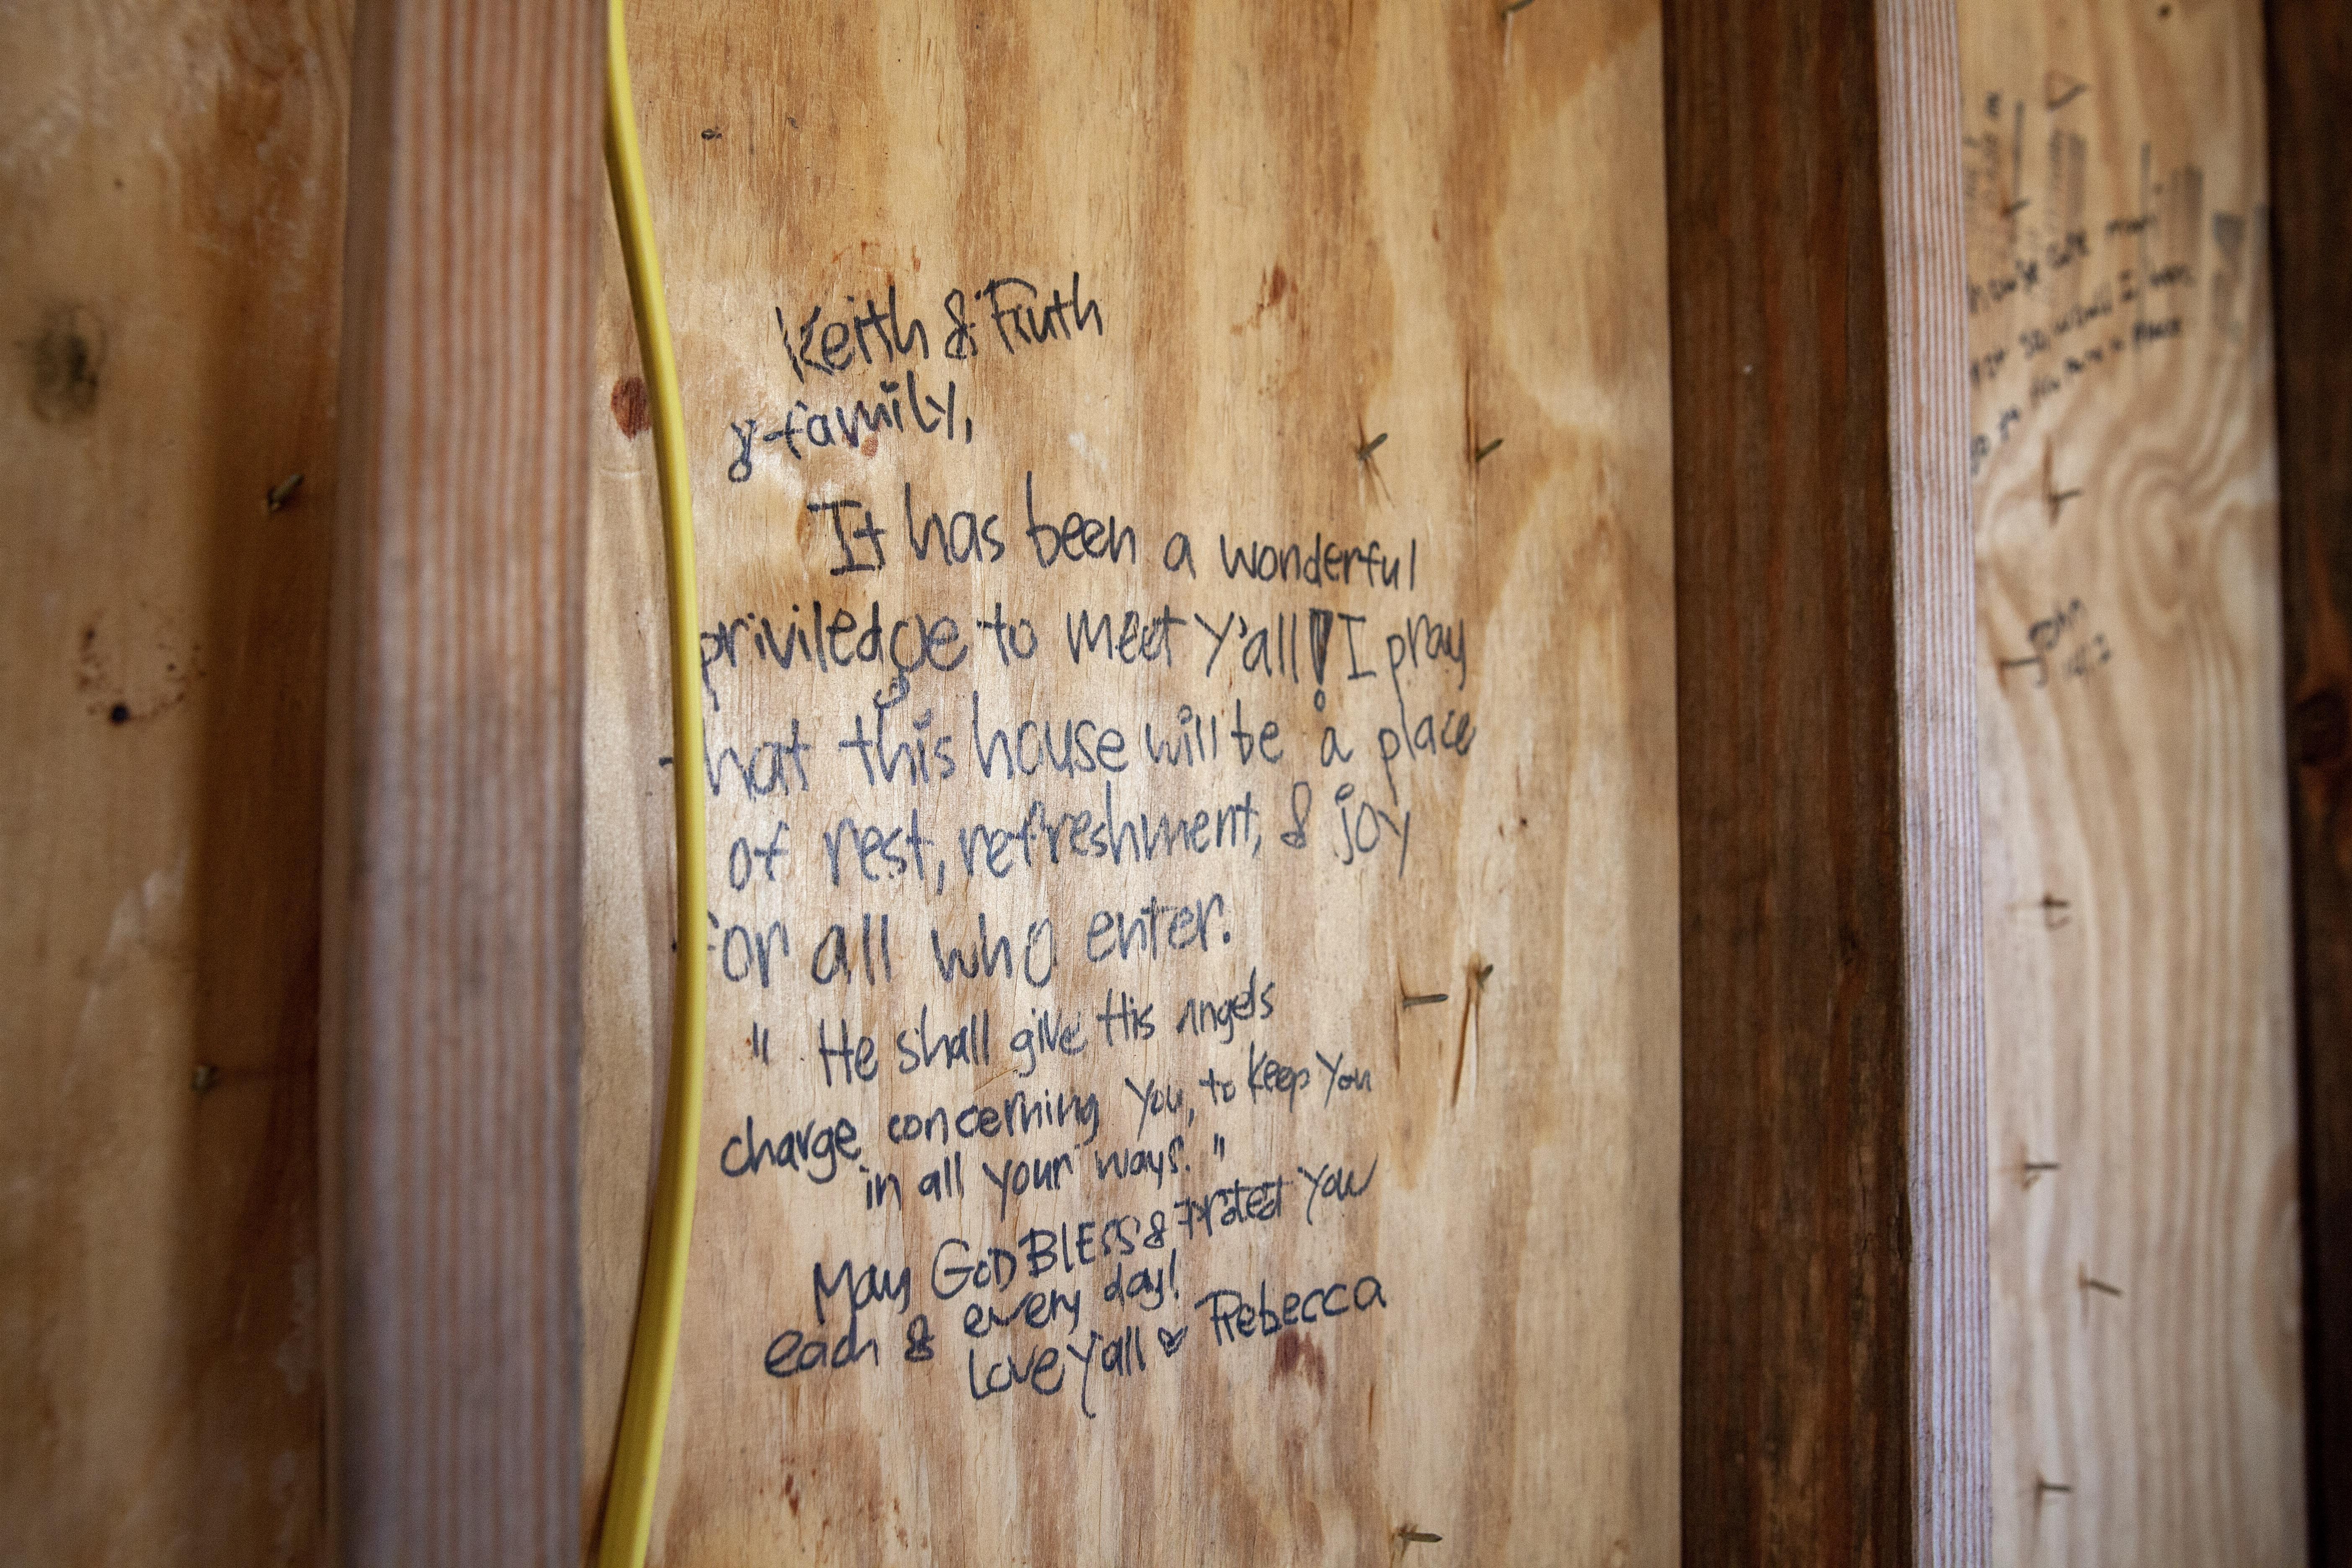 Keith & Ruth
& family,
It has been a wonderful
priviledge to meet Y'all! I pray
that this house will be a place
of rest, refreshment, & joy
for all who enter.
" He shall give His angels
charge concerning You, to keep You
in all your ways. "
May GOD BLESS & Protect You
each & every day!
Love Y'all ♥ Rebecca
house
so would I
John
14:2